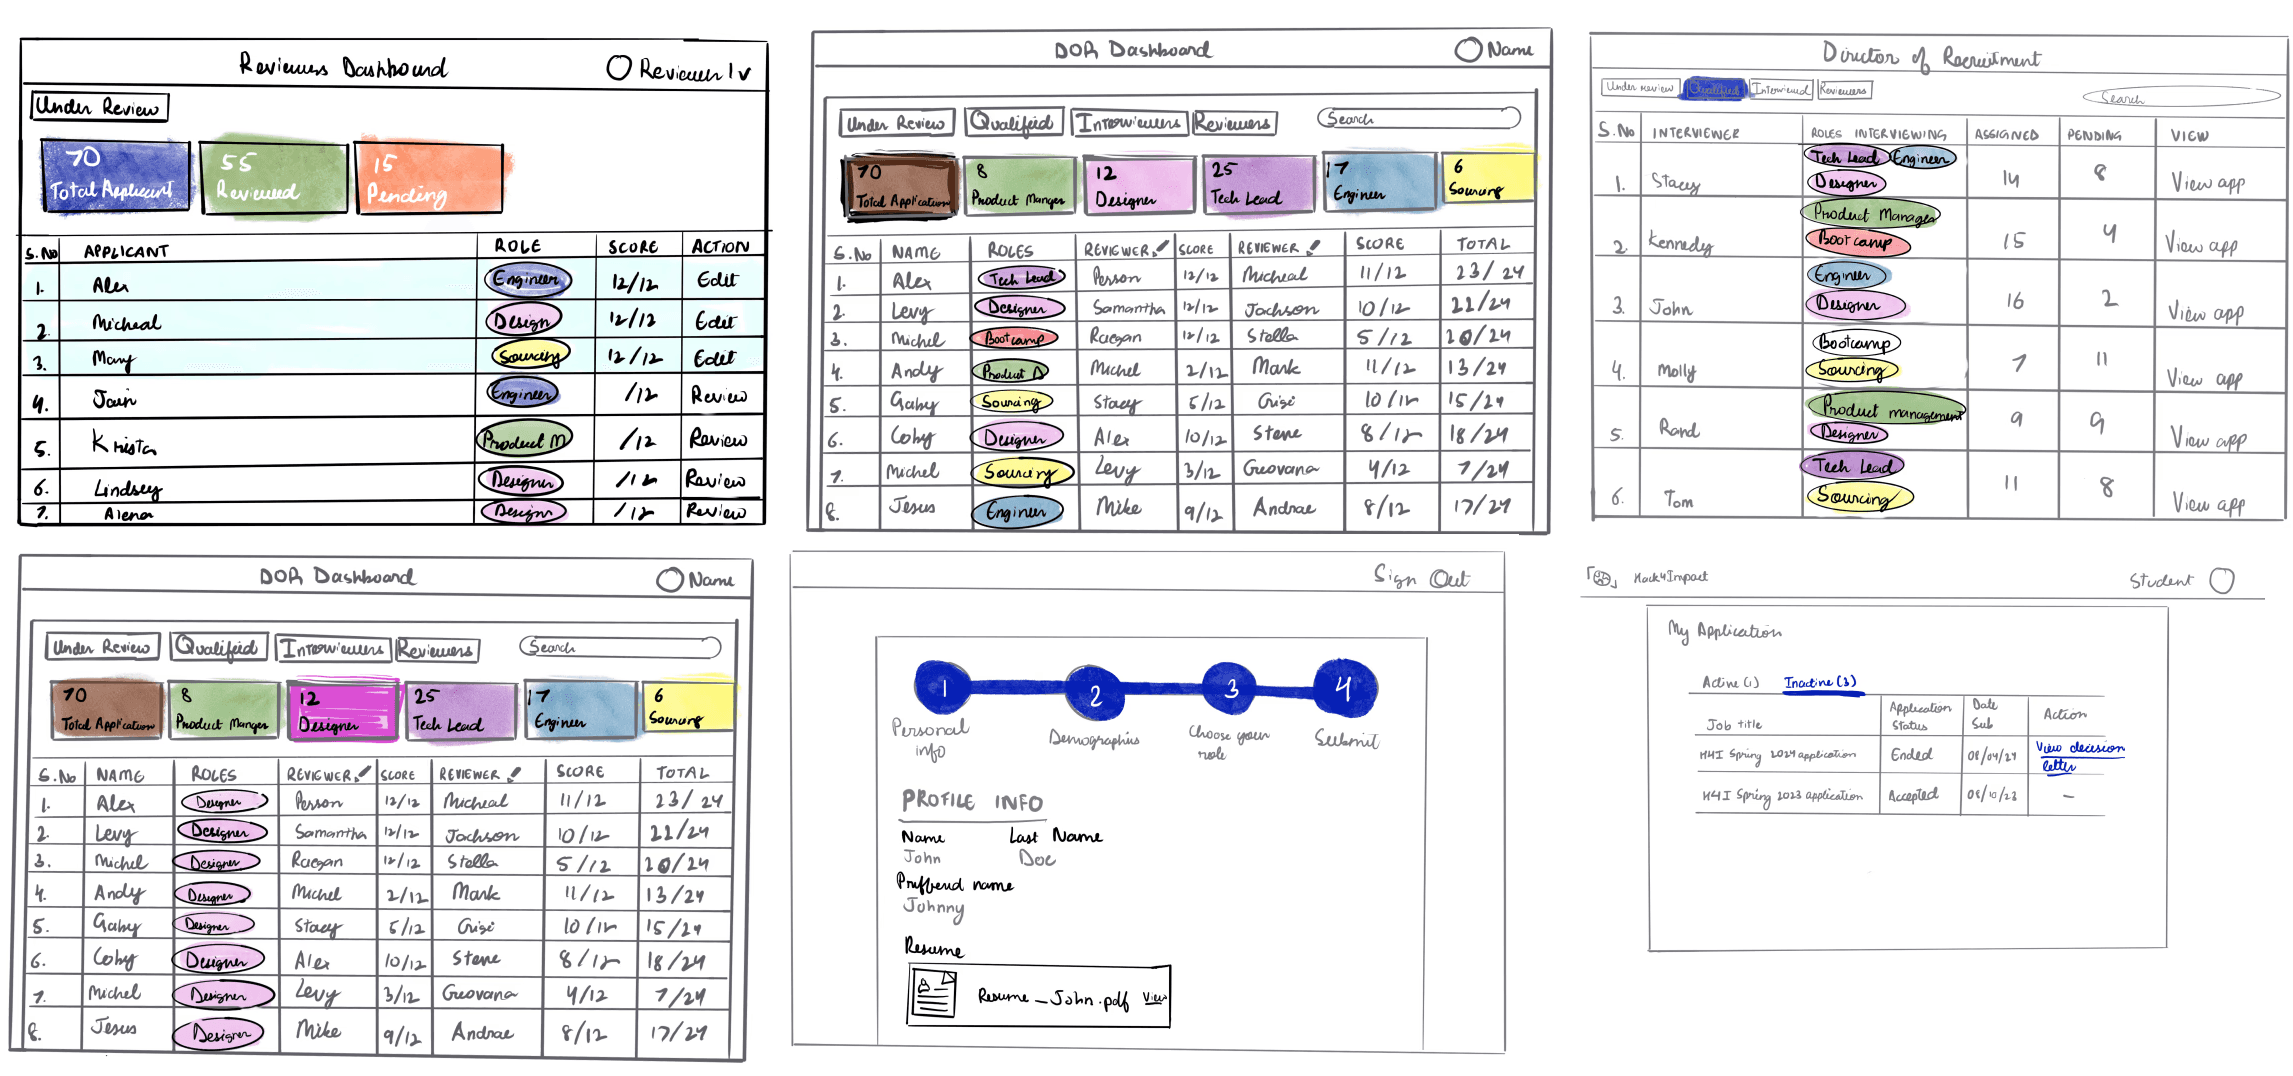 Reviewers Dashboard
Reviewer 1 v
Under Review
70
Total Applicant
55
Reviewed
15
Pending
S.No APPLICANT ROLE SCORE ACTION
1. Alex Engineer 12/12 Edit
2. Micheal Design 12/12 Edit
3. Mary Sourcing 12/12 Edit
4. Jain Engineer /12 Review
5. Krista Product M /12 Review
6. Lindsey Designer /12 Review
7. Alena Design /12 Review
DOR Dashboard
Name
Under Review Qualified Interviewers Reviewers Search
70
Total Application
8
Product Manger
12
Designer
25
Tech Lead
17
Engineer
6
Sourcing
S.No NAME ROLES REVIEWER SCORE REVIEWER SCORE TOTAL
1. Alex Tech Lead Person 12/12 Micheal 11/12 23/24
2. Levy Designer Samantha 12/12 Jackson 10/12 22/24
3. Michel Bootcamp Raegan 12/12 Stella 5/12 20/24
4. Andy Product Michel 2/12 Mark 11/12 13/24
5. Gaby Sourcing Stacy 5/12 Crisi 10/12 15/24
6. Coby Designer Alex 10/12 Steve 8/12 18/24
7. Michel Sourcing Levy 3/12 Geovana 4/12 7/24
8. Jesus Engineer Mike 9/12 Andrae 8/12 17/24
Director of Recruitment
Under review Qualified Interviewed Reviewers
Search
S.No INTERVIEWER ROLES INTERVIEWING ASSIGNED PENDING VIEW
1. Stacy Tech Lead Engineer Designer 14 8 View app
2. Kennedy Product Manager Bootcamp 15 4 View app
3. John Engineer Designer 16 2 View app
4. Molly Bootcamp Sourcing 7 11 View app
5. Rand Product management Designer 9 9 View app
6. Tom Tech Lead Sourcing 11 8 View app
DOR Dashboard
Name
Under Review Qualified Interviewers Reviewers Search
70
Total Application
8
Product Manger
12
Designer
25
Tech Lead
17
Engineer
6
Sourcing
S.No NAME ROLES REVIEWER SCORE REVIEWER SCORE TOTAL
1. Alex Designer Person 12/12 Micheal 11/12 23/24
2. Levy Designer Samantha 12/12 Jackson 10/12 22/24
3. Michel Designer Raegan 12/12 Stella 5/12 20/24
4. Andy Designer Michel 2/12 Mark 11/12 13/24
5. Gaby Designer Stacy 5/12 Crisi 10/12 15/24
6. Coby Designer Alex 10/12 Steve 8/12 18/24
7. Michel Designer Levy 3/12 Geovana 4/12 7/24
8. Jesus Designer Mike 9/12 Andrae 8/12 17/24
Sign Out
1 2 3 4
Personal info
Demographics
Choose your role
Submit
PROFILE INFO
Name Last Name
John Doe
name
Johnny
Resume
Resume_John.pdf View
Hack4Impact
Student
My Application
Active (1) Inactive (3)
Job title
Application Status
Date Sub
Action
H4I Spring 2024 application Ended 08/04/24 View decision letter
H4I Spring 2023 application Accepted 08/10/23 —